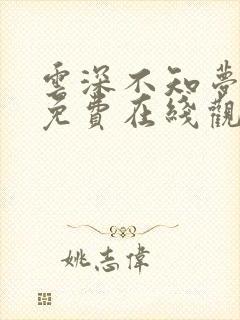 雲深不知夢
免費在綫觀
姚志偉